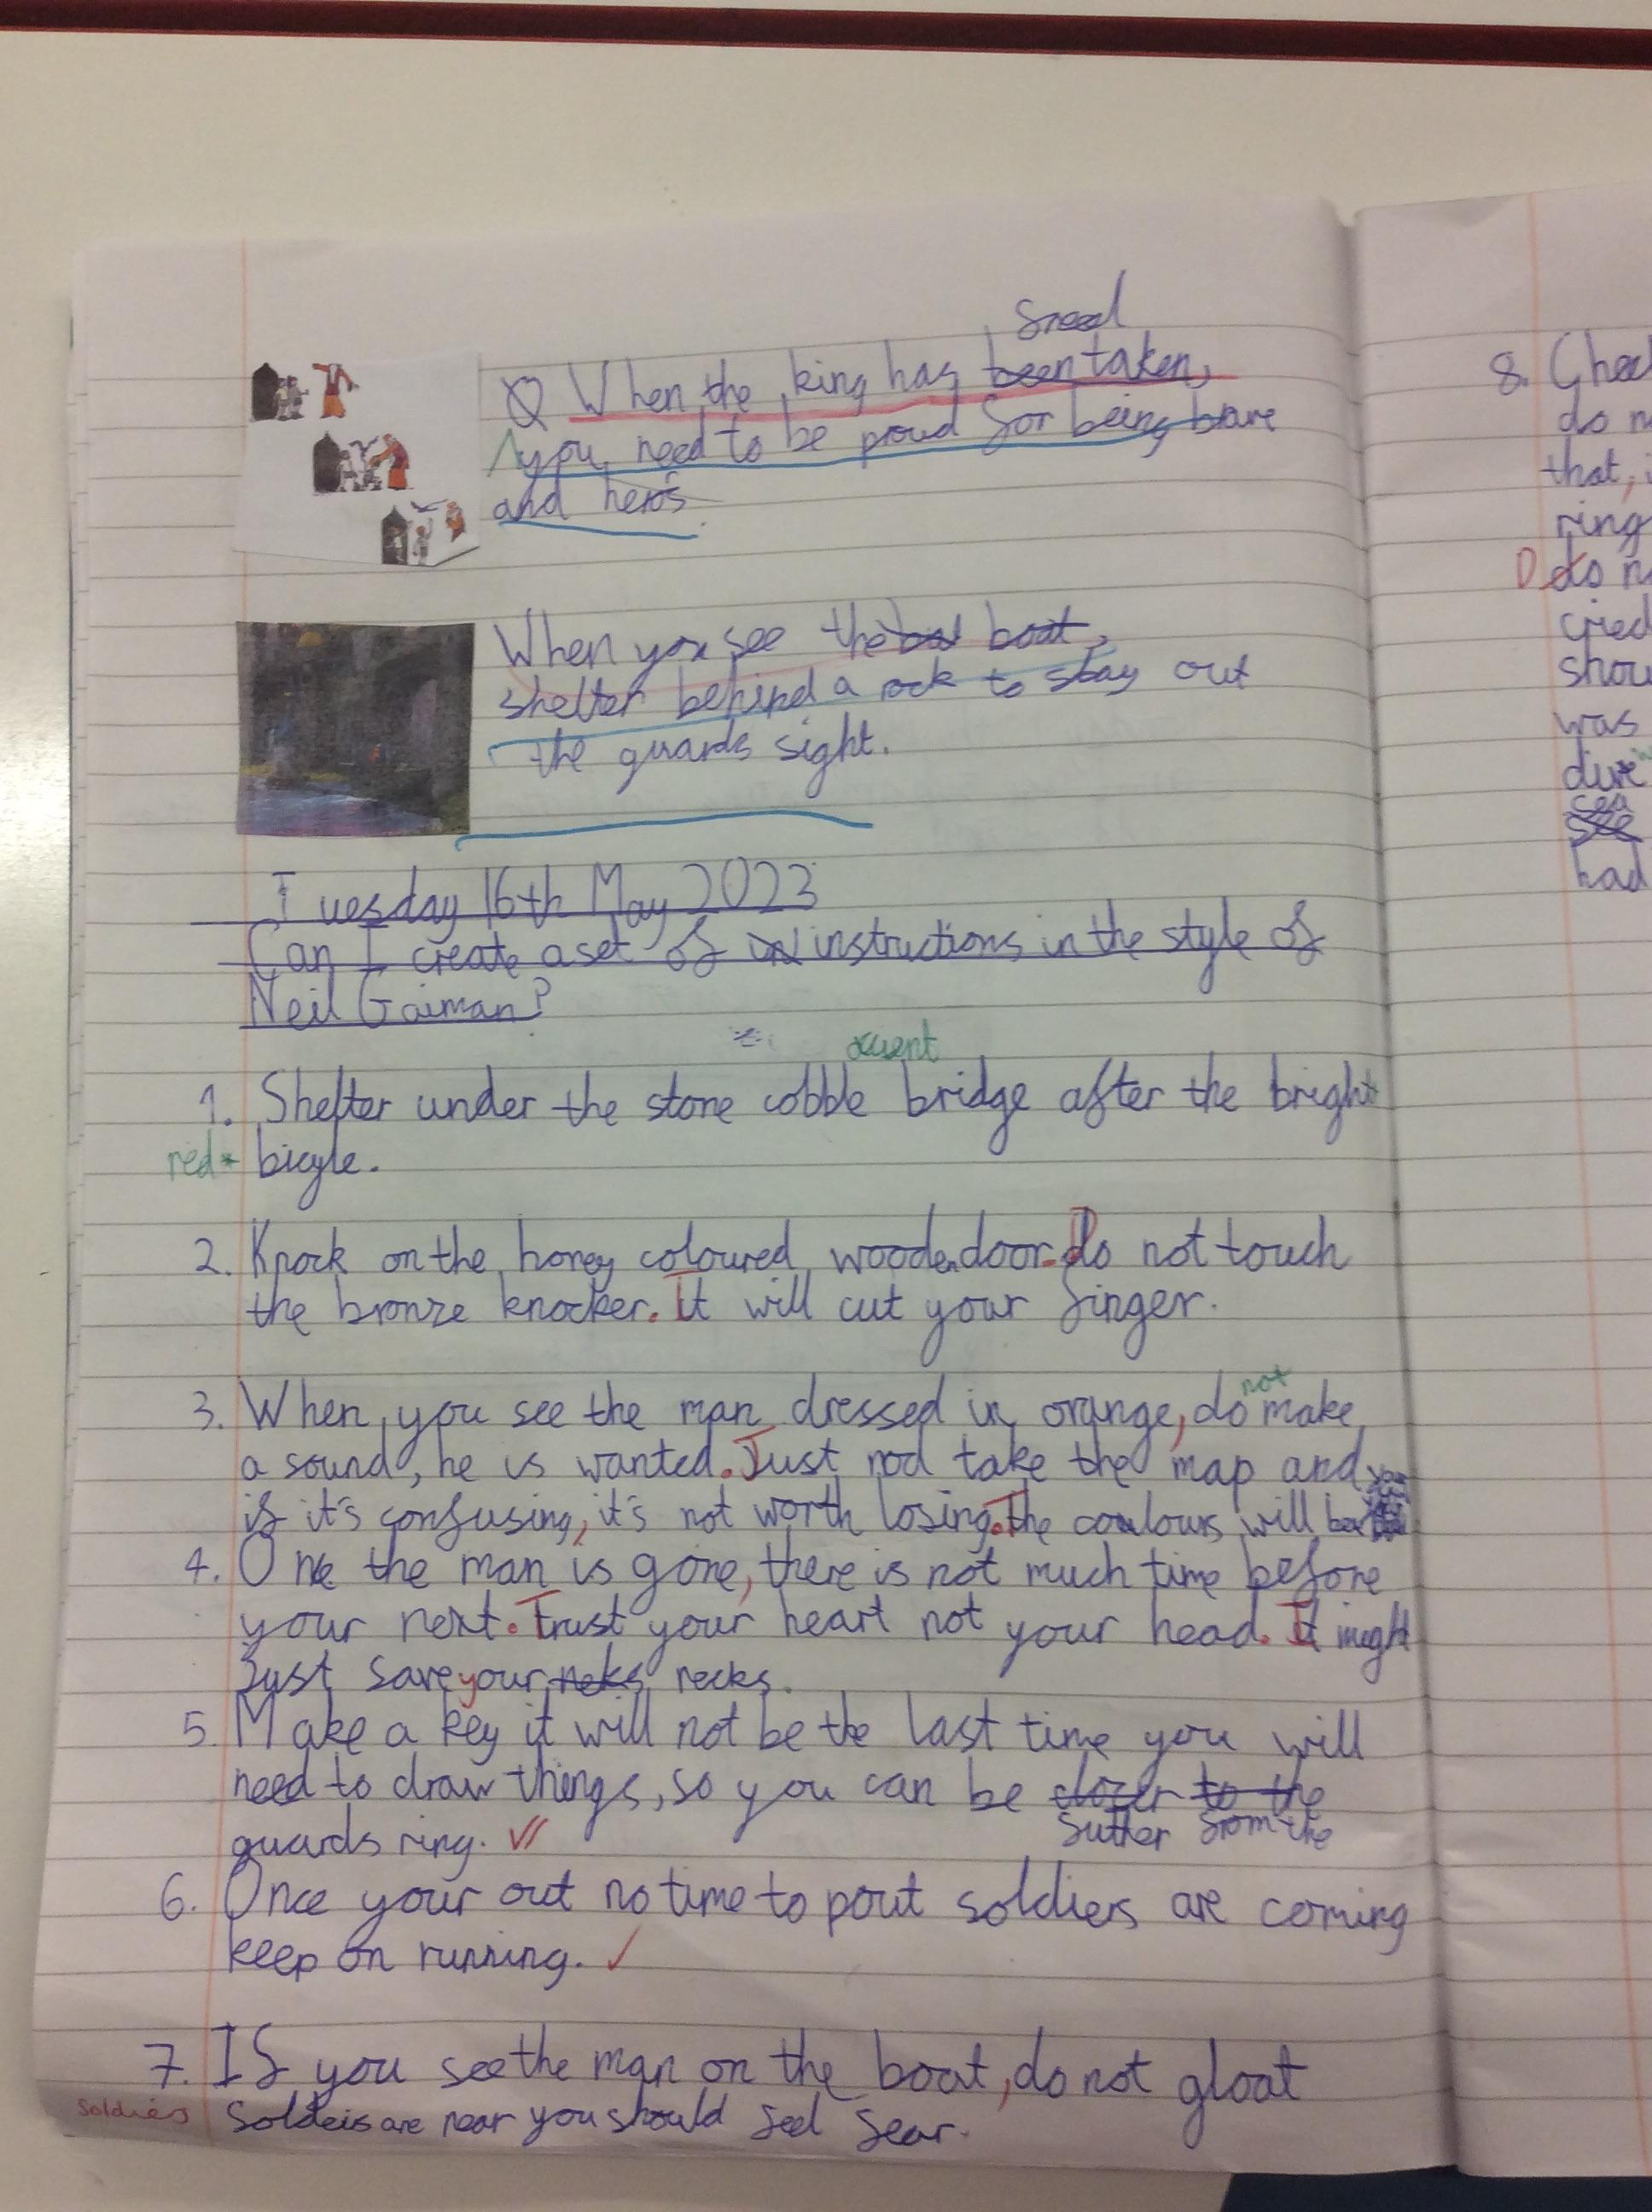 When the king has been taken,
you need to be proud for being brave
and heros.
When you see the boat,
shelter behind a rock to stay out
the guards sight.
Tuesday 16th May 2023
Can I create a set of instructions in the style of
Neil Gaiman?
1. Shelter under the stone cobble bridge after the bright
red* bicyle.
2. Knock on the honey coloured wooden door. Do not touch
the bronze knocker. It will cut your finger.
not
3. When you see the man dressed in orange, do make
a sound, he is wanted. Just nod take the map and
if it's confusing, it's not worth losing. The coulours will
4. Once the man is gone, there is not much time before
your next. Trust your heart not your head. It might
Just save your neks necks.
5. Make a key it will not be the last time you will
need to draw things, so you can be closer to the
futher from the
guards ring.
6. Once your out no time to pout soldiers are coming
keep on running.
7. If you see the man on the boat, do not gloat
soldies Soldeis are near you should feel fear.
8. Chec
do n
that, i
ring
Do n
cried
shou
was
dive
sea
see
had